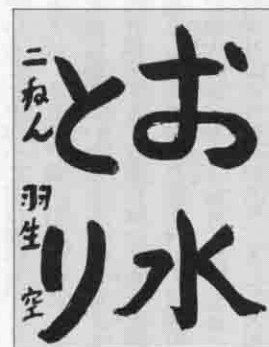 お水
とり
二ねん 羽生 空